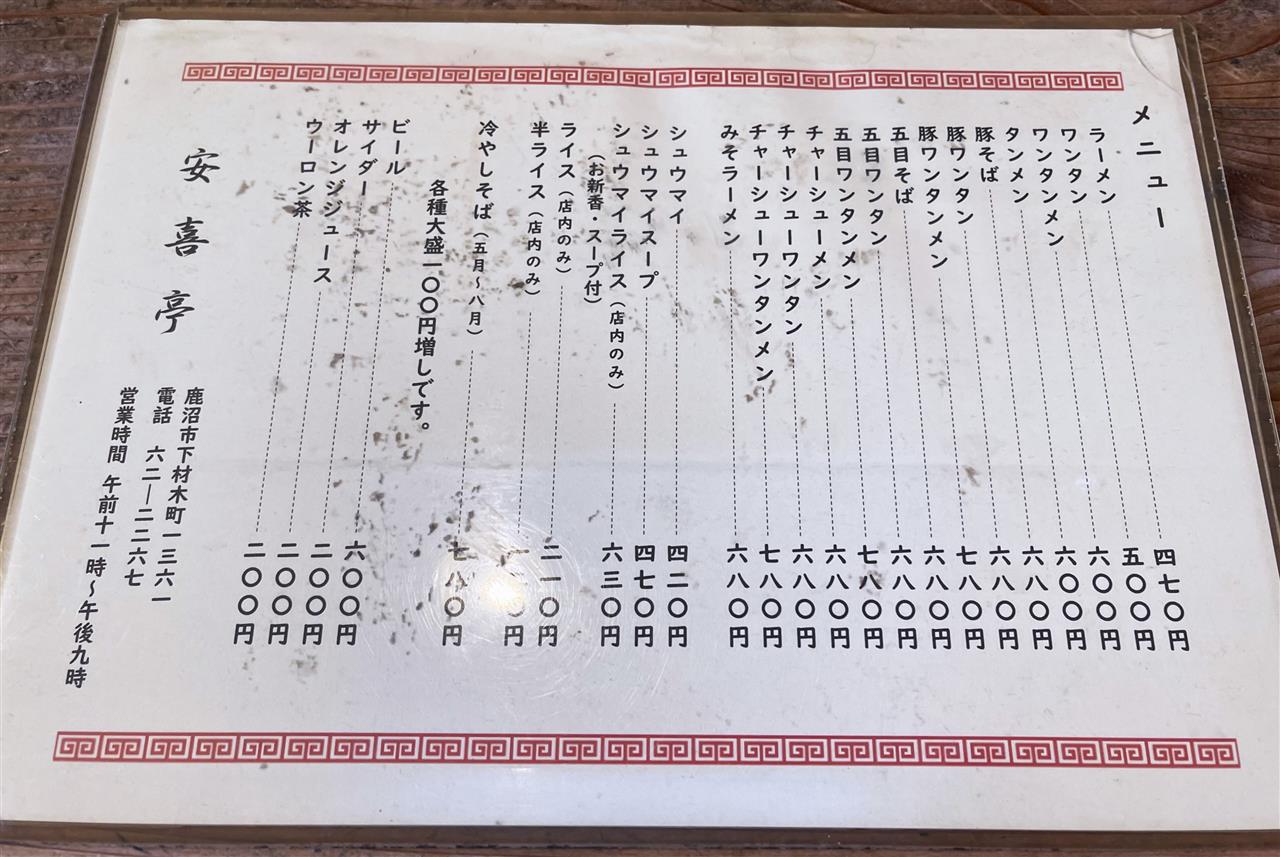 メニュー
ラーメン 四七〇円
ワンタン 五〇〇円
ワンタンメン 六〇〇円
タンメン 六〇〇円
豚そば 六八〇円
豚ワンタン 六八〇円
豚ワンタンメン 七八〇円
五目そば 六八〇円
五目ワンタン 六八〇円
五目ワンタンメン 七八〇円
チャーシューメン 六八〇円
チャーシューワンタン 六八〇円
チャーシューワンタンメン 七八〇円
みそラーメン 六八〇円
シュウマイ 四二〇円
シュウマイスープ 四七〇円
シュウマイライス（店内のみ） 六三〇円
（お新香・スープ付）
ライス（店内のみ） 二一〇円
半ライス（店内のみ）
冷やしそば（五月～八月） 七八〇円
各種大盛一〇〇円増しです。
ビール 六〇〇円
サイダー 二〇〇円
オレンジジュース 二〇〇円
ウーロン茶 二〇〇円
安喜亭
鹿沼市下材木町一三六一
電話 六二―二二六七
営業時間 午前十一時～午後九時